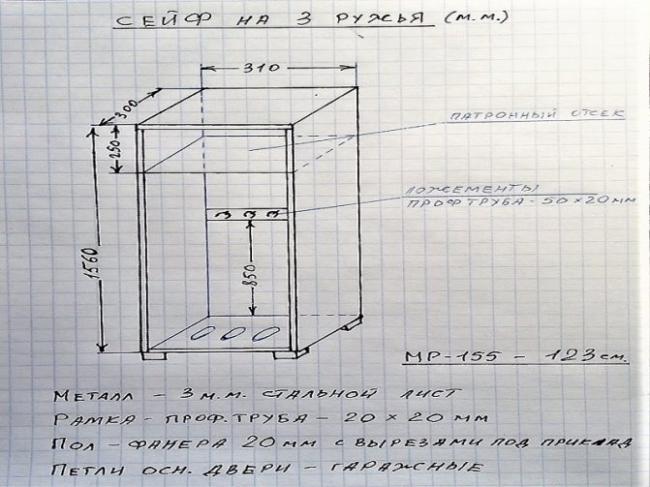 СЕЙФ НА 3 РУЖЬЯ (М.М.)
310
300
ПАТРОННЫЙ ОТСЕК
250
ЛОЖЕМЕНТЫ
ПРОФ.ТРУБА - 50×20 мм
1560
850
МР-155 - 123 см.
МЕТАЛЛ - 3 М.М. СТАЛЬНОЙ ЛИСТ
РАМКА - ПРОФ.ТРУБА - 20×20 мм
ПОЛ - ФАНЕРА 20 мм С ВЫРЕЗАМИ ПОД ПРИКЛАД
ПЕТЛИ ОСН. ДВЕРИ - ГАРАЖНЫЕ